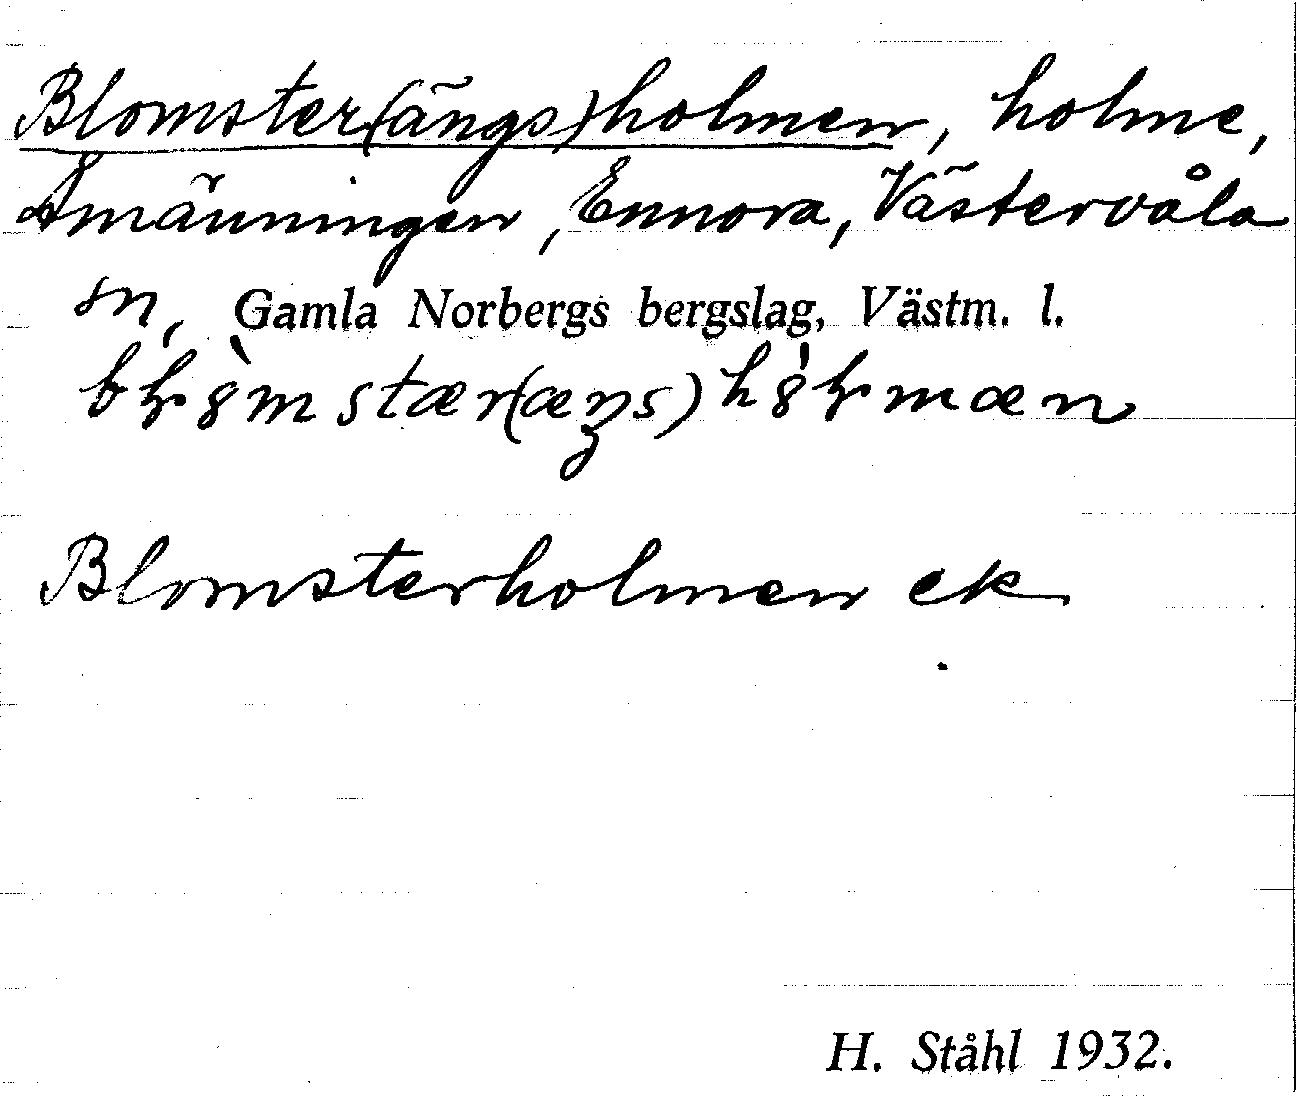 Blomster(ängs)holmen, holme,
Åmänningen, Ennora, Västervåla
sn, Gamla Norbergs bergslag, Västm. l.
Blomsterholmen ek
H. Ståhl 1932.